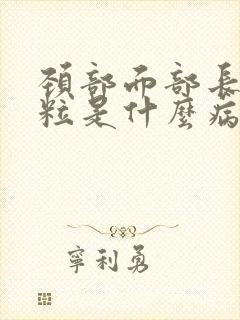 頚部而部長
粒是什麼病
寧利勇